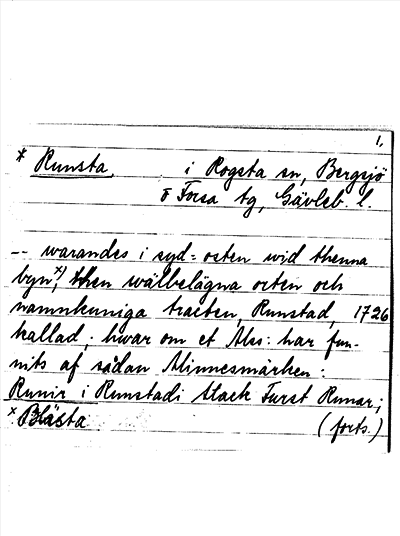 1.
* Runsta, i Rogsta sn, Bergsjö
o Forsa tg, Gävleb. l.
-- warandes i syd=osten wid thenna
byn,x) then wälbelägna orten och
namnkuniga tracten, Runstad, 1726
kallad; hwar om et Mss: har fun-
nits af sådan Minnesmärken:
Runir i Runstadi stack Furst Runar;
x Blästa (forts.)